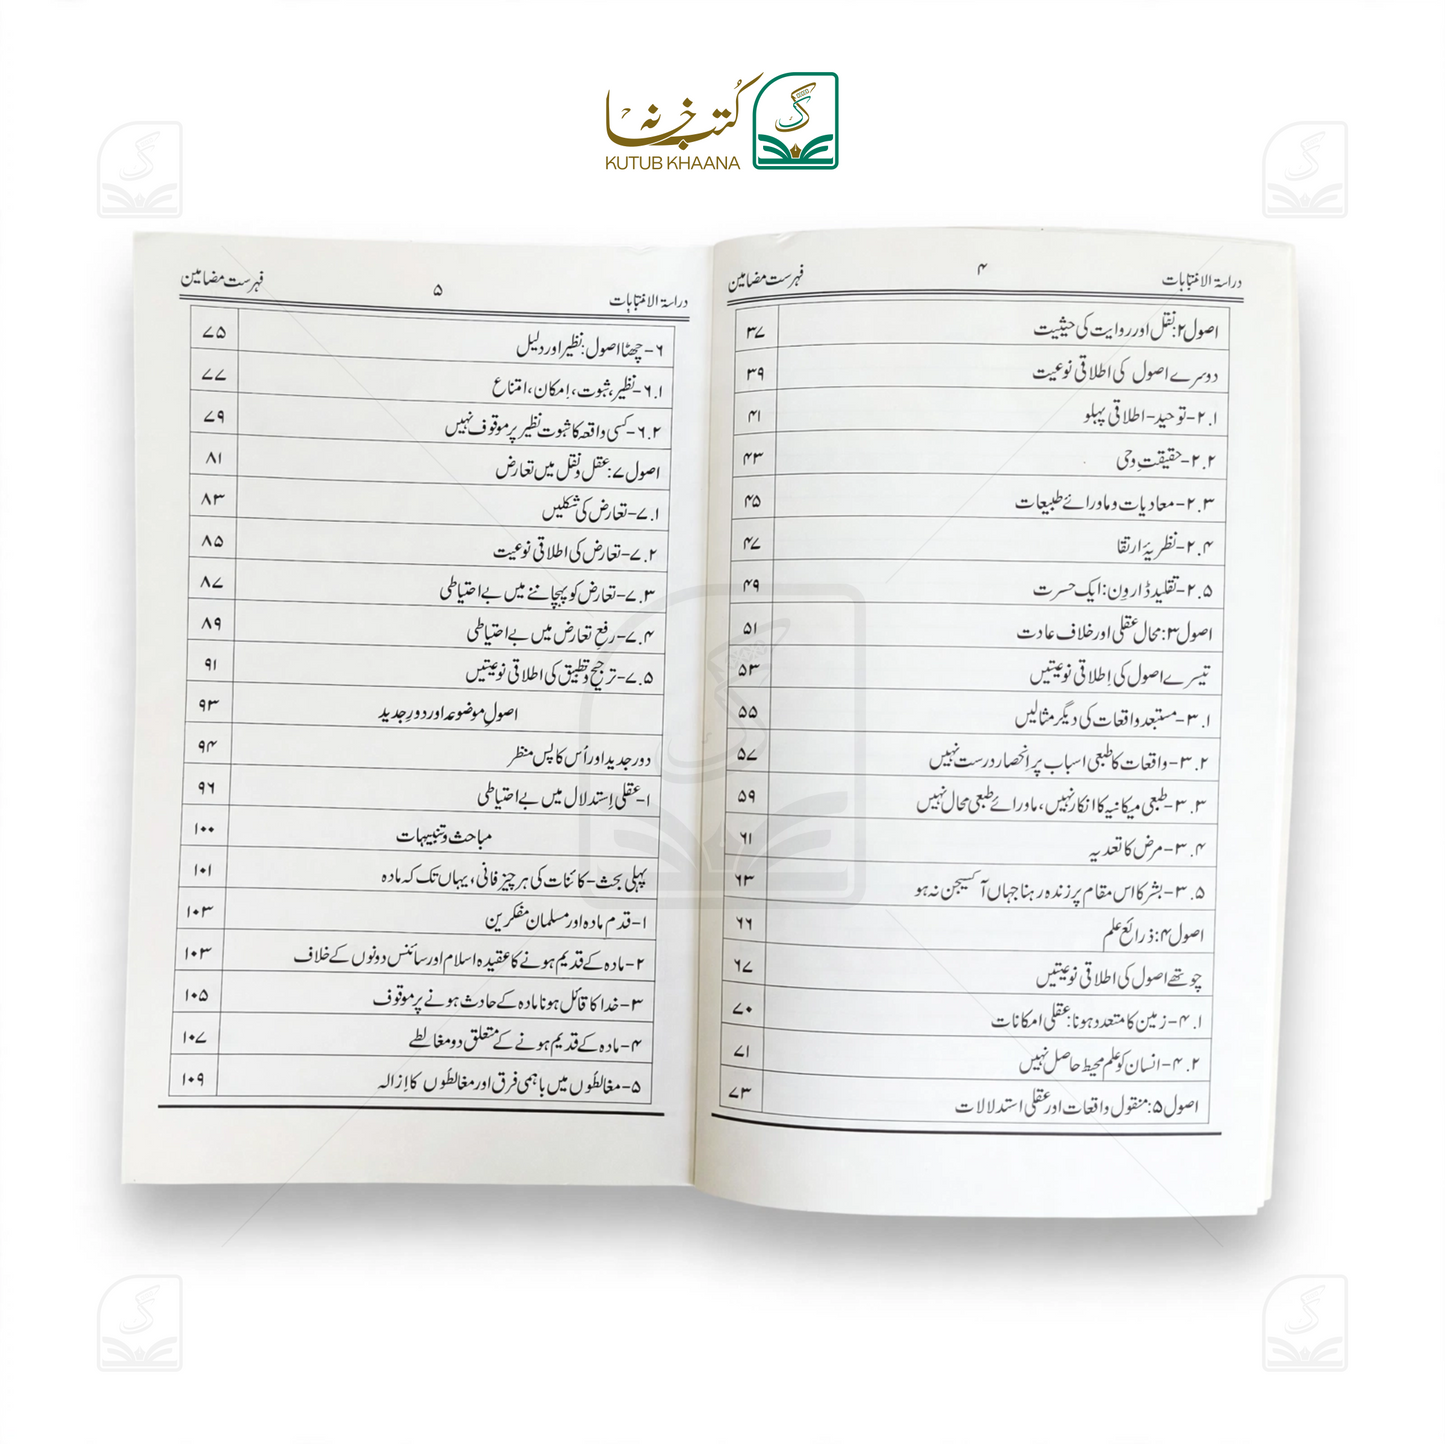 کتب خانہ
KUTUB KHAANA
دراسۃ الانتباہات ۴ فہرست مضامین
اصول ۲: نقل اور روایت کی حیثیت ۳۷
دوسرے اصول کی اطلاقی نوعیت ۳۹
۲.۱- توحید- اطلاقی پہلو ۴۱
۲.۲- حقیقتِ وحی ۴۳
۲.۳- معادیات و ماورائے طبیعات ۴۵
۲.۴- نظریۂ ارتقا ۴۷
۲.۵- تقلیدِ ڈارون: ایک حسرت ۴۹
اصول ۳: محال عقلی اور خلاف عادت ۵۱
تیسرے اصول کی اِطلاقی نوعیتیں ۵۳
۳.۱- مستبعد واقعات کی دیگر مثالیں ۵۵
۳.۲- واقعات کا طبعی اسباب پر اِنحصار درست نہیں ۵۷
۳.۳- طبعی میکانیہ کا انکار نہیں، ماورائے طبعی محال نہیں ۵۹
۳.۴- مرض کا تعدیہ ۶۱
۳.۵- بشر کا اس مقام پر زندہ رہنا جہاں آکسیجن نہ ہو ۶۳
اصول ۴: ذرائع علم ۶۶
چوتھے اصول کی اطلاقی نوعیتیں ۶۷
۴.۱- زمین کا متعدد ہونا: عقلی امکانات ۷۰
۴.۲- انسان کو علم محیط حاصل نہیں ۷۱
اصول ۵: منقول واقعات اور عقلی استدلالات ۷۳
دراسۃ الانتباہات ۵ فہرست مضامین
۶- چھٹا اصول: نظیر اور دلیل ۷۵
۶.۱- نظیر، ثبوت، اِمکان، امتناع ۷۷
۶.۲- کسی واقعہ کا ثبوت نظیر پر موقوف نہیں ۷۹
اصول ۷: عقل و نقل میں تعارض ۸۱
۷.۱- تعارض کی شکلیں ۸۳
۷.۲- تعارض کی اطلاقی نوعیت ۸۵
۷.۳- تعارض کو پہچاننے میں بے احتیاطی ۸۷
۷.۴- رفعِ تعارض میں بے احتیاطی ۸۹
۷.۵- ترجیح و تطبیق کی اطلاقی نوعیتیں ۹۱
اصولِ موضوعہ اور دورِ جدید ۹۳
دور جدید اور اُس کا پس منظر ۹۴
۱- عقلی اِستدلال میں بے احتیاطی ۹۶
مباحث و تنبیہات ۱۰۰
پہلی بحث- کائنات کی ہر چیز فانی، یہاں تک کہ مادہ ۱۰۱
۱- قدم مادہ اور مسلمان مفکرین ۱۰۳
۲- مادہ کے قدیم ہونے کا عقیدہ اسلام اور سائنس دونوں کے خلاف ۱۰۳
۳- خدا کا قائل ہونا مادہ کے حادث ہونے پر موقوف ۱۰۵
۴- مادہ کے قدیم ہونے کے متعلق دو مغالطے ۱۰۷
۵- مغالطوں میں باہمی فرق اور مغالطوں کا اِزالہ ۱۰۹